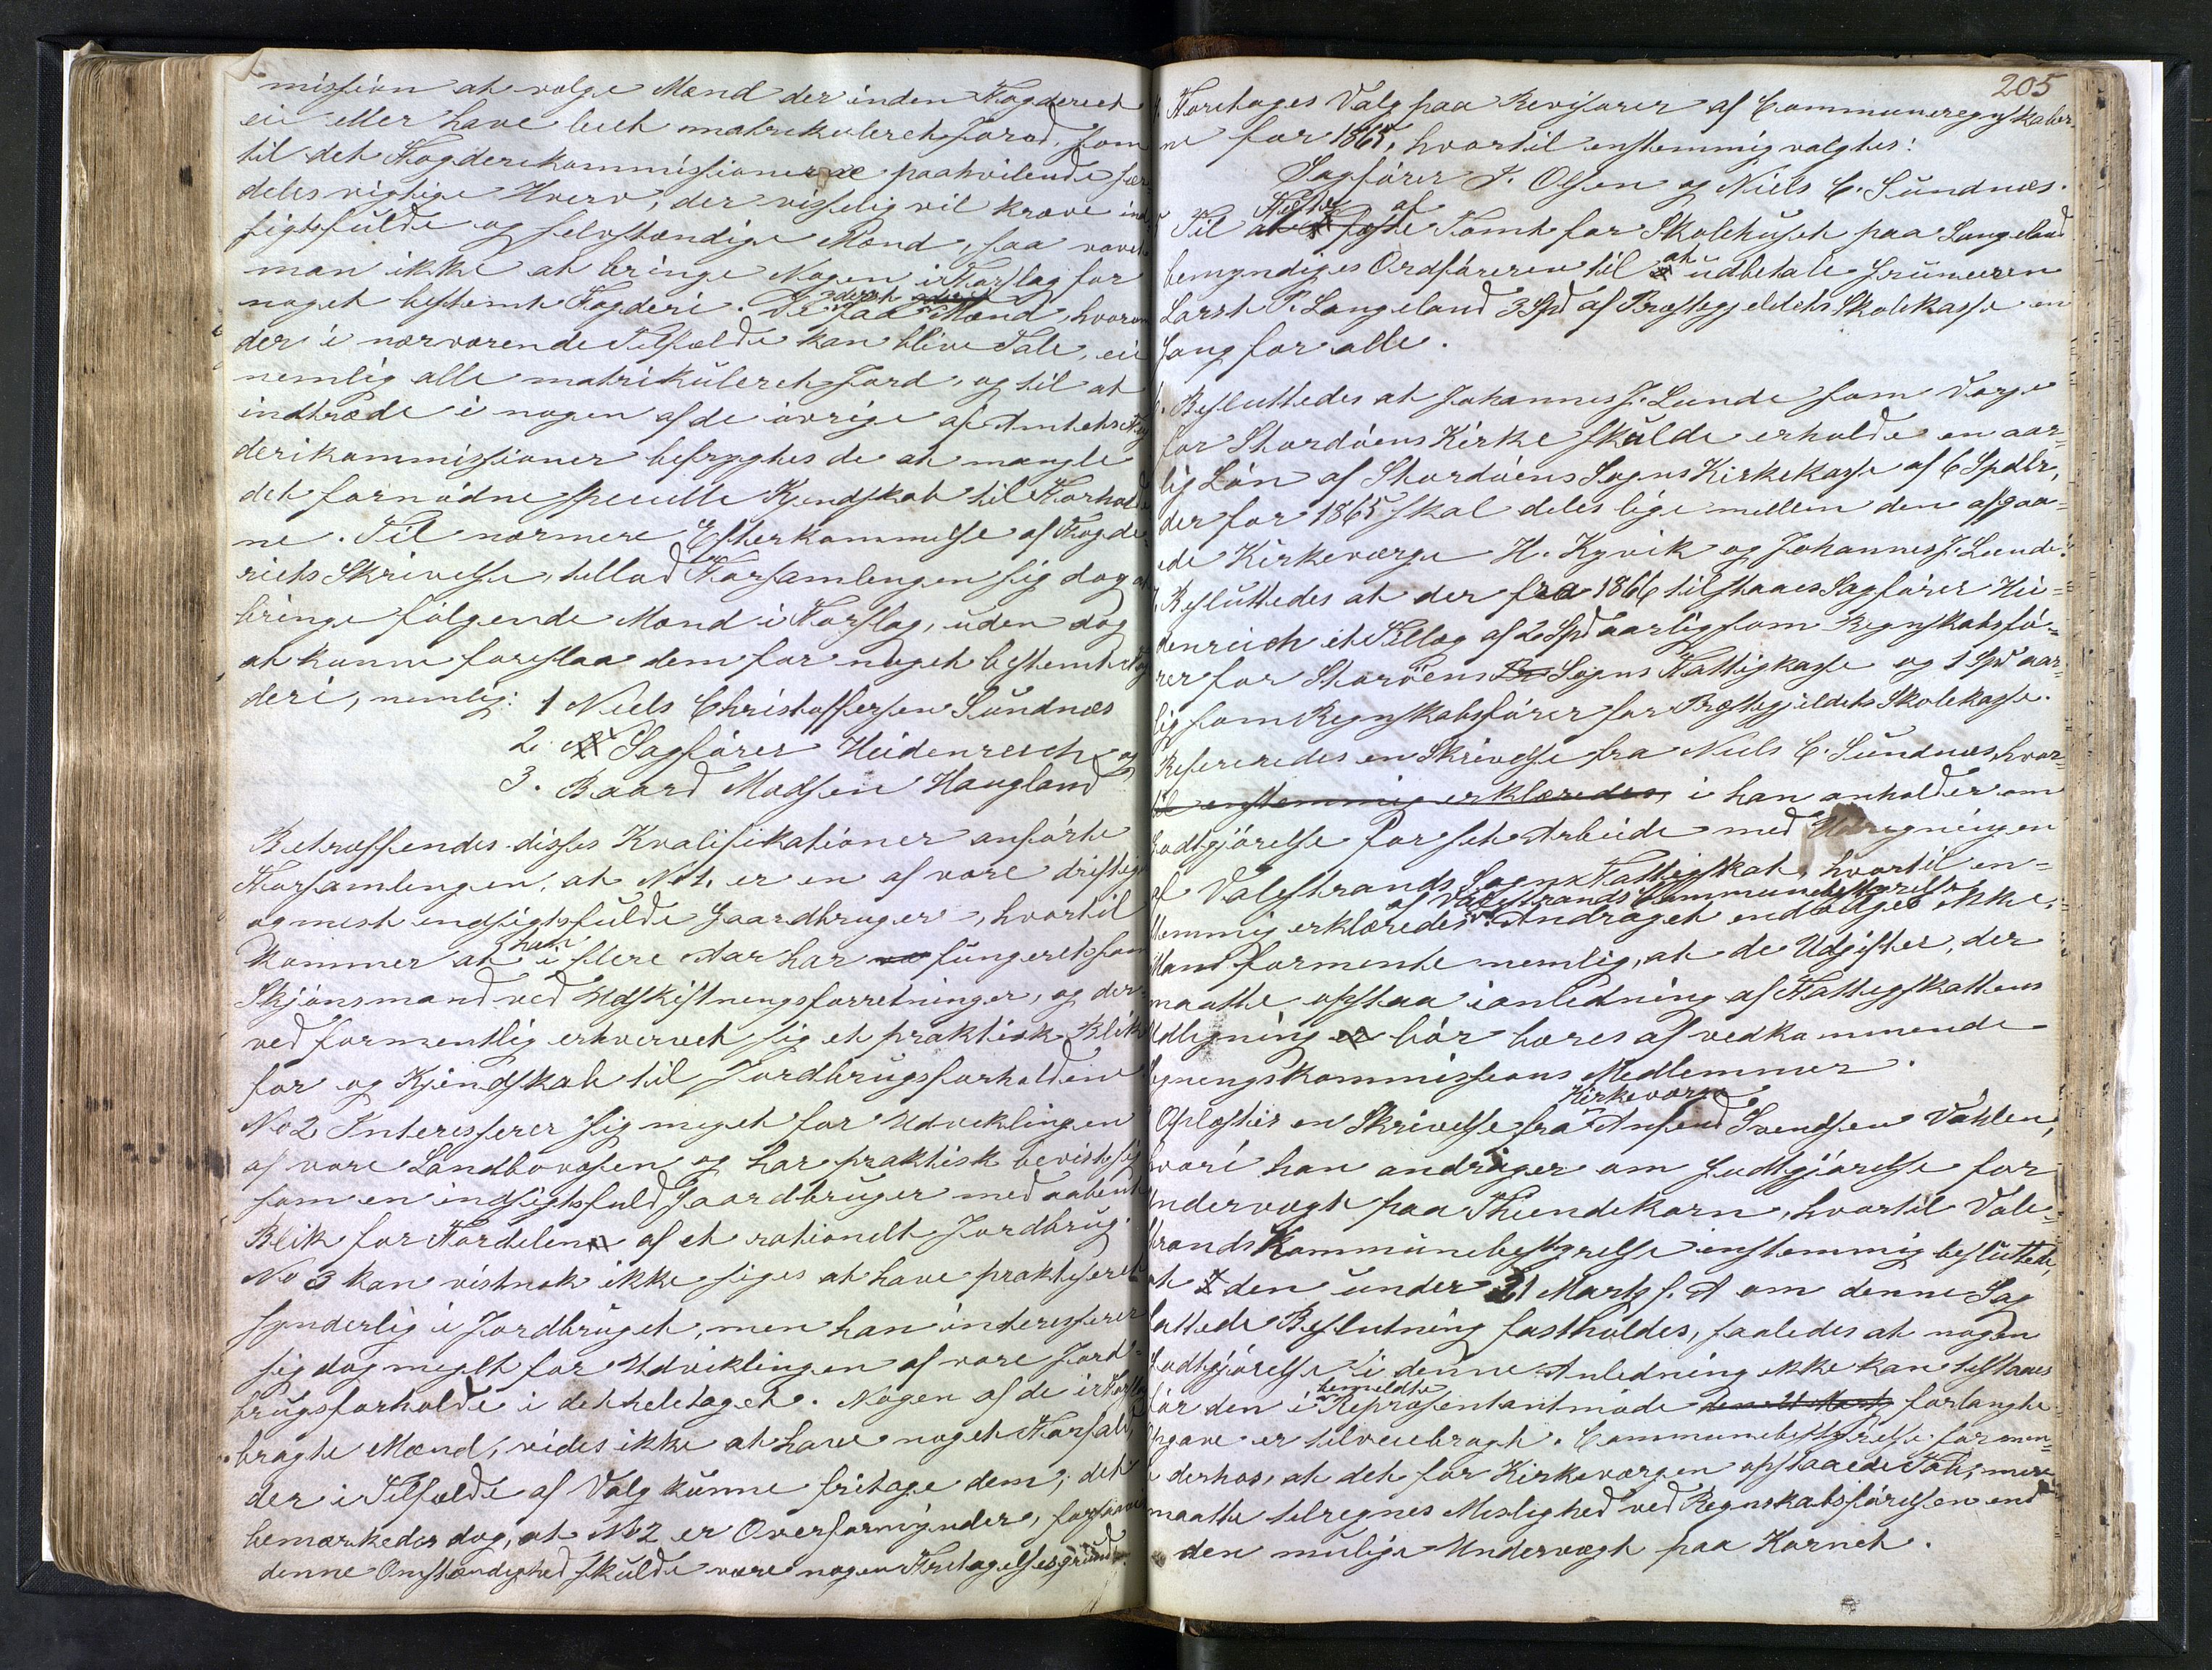 mission at vælge Mænd der inden Fogderiet
eie eller have leiet matrikuleret Jord, som
til det Fogderikommissionerne paahvilende sær-
deles vigtige Hverv, der visselig vil kræve ind-
sigtsfulde og selvstændige Mænd, saa vovet
man ikke at bringe Nogen i Forslag for
noget bestemt Fogderi. De faa Mænd, hvorom
der i nærværende Tilfælde kan blive Tale, eie
nemlig alle matrikuleret Jord, og til at
indtræde i nogen af de øvrige af Amtets Fog
derikommissioner befrygtes de at mangle
det fornødne specielle Kjendskab til Forholde
ne. Til nærmere Efterkommelse af Fogde-
riets Skrivelse, tillod Forsamlingen sig dog at
bringe følgende Mænd i Forslag, uden dog
at kunne foreslaa dem for noget bestemt Fog
deri, nemlig: 1 Niels Christoffersen Sundnæs
2. Sagfører Heidenreich og
3. Baard Madsen Haugland
Betræffendes disses Kvalifikationer anførte
Forsamlingen, at No 1. er en af vore driftige
og mest indsigtsfulde Gaardbruger, hvortil
kommer at han i flere Aar har fungeret som
Skjønsmand ved Udskiftningsforretninger, og der-
ved formentlig erhvervet sig et praktisk Blik
for og Kjendskab til Jordbrugsforholdene
No 2 Interesserer sig meget for Udviklingen
af vore Landbovæsen og har praktisk bevist sig
som en indsigtsfuld Gaardbruger med aabent
Blik for Fordelen af et rationelt Jordbrug.
No 3 kan vistnok ikke siges at have praktiseret
synderlig i Jordbruget, men han interesserer
sig dog meget for Udviklingen af vore Jord-
brugsforholde i det hele taget. Nogen af de i Forslag
bragte Mænd, vides ikke at have noget Forfald,
der i Tilfælde af Valg kunne fritage dem; det
bemærkedes dog, at No 2 er Overformynder, forsaavidt
denne Omstændighed skulde være nogen Fritagelsesgrund.
205
Foretoges Valg paa Revisorer af Communeregnskaber-
ne for 1865, hvortil enstemmig valgtes:
Sagfører J. Olsen og Niels C. Sundnæs.
Til Fæste af Tomt for Skolehuset paa Langeland
bemyndiges Ordføreren til at udbetale Grundeieren
Larst P. Langeland 3 Spd af Præstegjeldets Skolekasse en
Gang for alle.
Besluttedes at Johannes J. Lunde som Værge
for Stordøens Kirke skulde erholde en aar-
lig Løn af Stordøens Sogns Kirkekasse af 6 Spdlr,
der for 1865 skal deles lige mellem den afgaa-
ede Kirkeværge H. Kyvik og Johannes J. Lunde.
Besluttedes at der fra 1866 tilstaaes Sagfører Hei-
denreich et Tillæg af 2 Spd aarlig som Regnskabsfø-
rer for Stordøens Sogns Fattigkasse og 1 Spd aar-
lig som Regnskabsfører for Præstegjeldets Skolekasse.
Refereredes en Skrivelse fra Niels C. Sundnæs, hvor-
til enstemmig erklæredes, i han anholder om
Godtgjørelse for sit Arbeide med Udregningen
af Valestrands Sogns Fattigskat, hvortil en-
af Valestrands Communebestyrelse
stemmig erklæredes: Andraget indvilges ikke,
Man formente nemlig, at de Udgifter, der
maatte opstaa i anledning af Fattigskattens
Udligning bør bæres af vedkommende
Ligningskommissions Medlemmer.
Kirkeværge
Oplæstes en Skrivelse fra Anfend Svendsen Våhlen,
hvori han andrager om Godtgjørelse for
Undervægt paa Tiendekorn, hvortil Vale-
strands Kommunebestyrelse enstemmig besluttede,
at den under 21 Marts f. A om denne Sag
fattede Beslutning fastholdes, saaledes at nogen
Godtgjørelse i denne Anledning ikke kan tilstaaes
før den i bemeldte Repræsentantmøde den 21 Marts forlangte
Opgave er tilveiebragt. Communebestyrelsen formen-
te derhos, at det for Kirkeværgen opstaaede Tab, mere
maatte tilregnes Mislighed ved Regnskabsførelsen end
den mulige Undervægt paa Kornet.